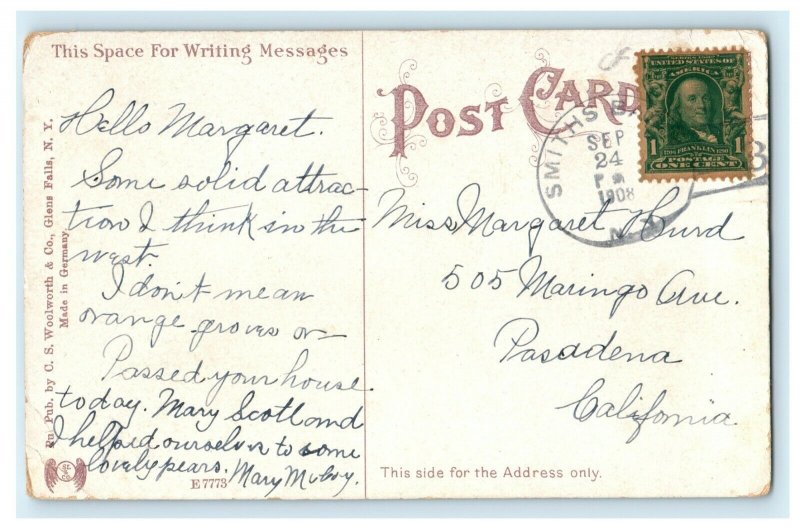 This Space For Writing Messages
Hello Margaret.
Some solid attrac-
tion I think in the
west.
I don't mean
orange groves or—
Passed your house
today. Mary Scotland
I helped ourselves to some
lovely pears. Mary
E 7773
Pub. by C. S. Woolworth & Co., Glens Falls, N. Y.
Made in Germany
POST CARD
SMITHS BA
SEP
24
PM
1908
N.
UNITED STATES OF
AMERICA
FRANKLIN
1 POSTAGE 1
ONE CENT
Miss Margaret Hurd
505 Maringo Ave.
Pasadena
California
This side for the Address only.